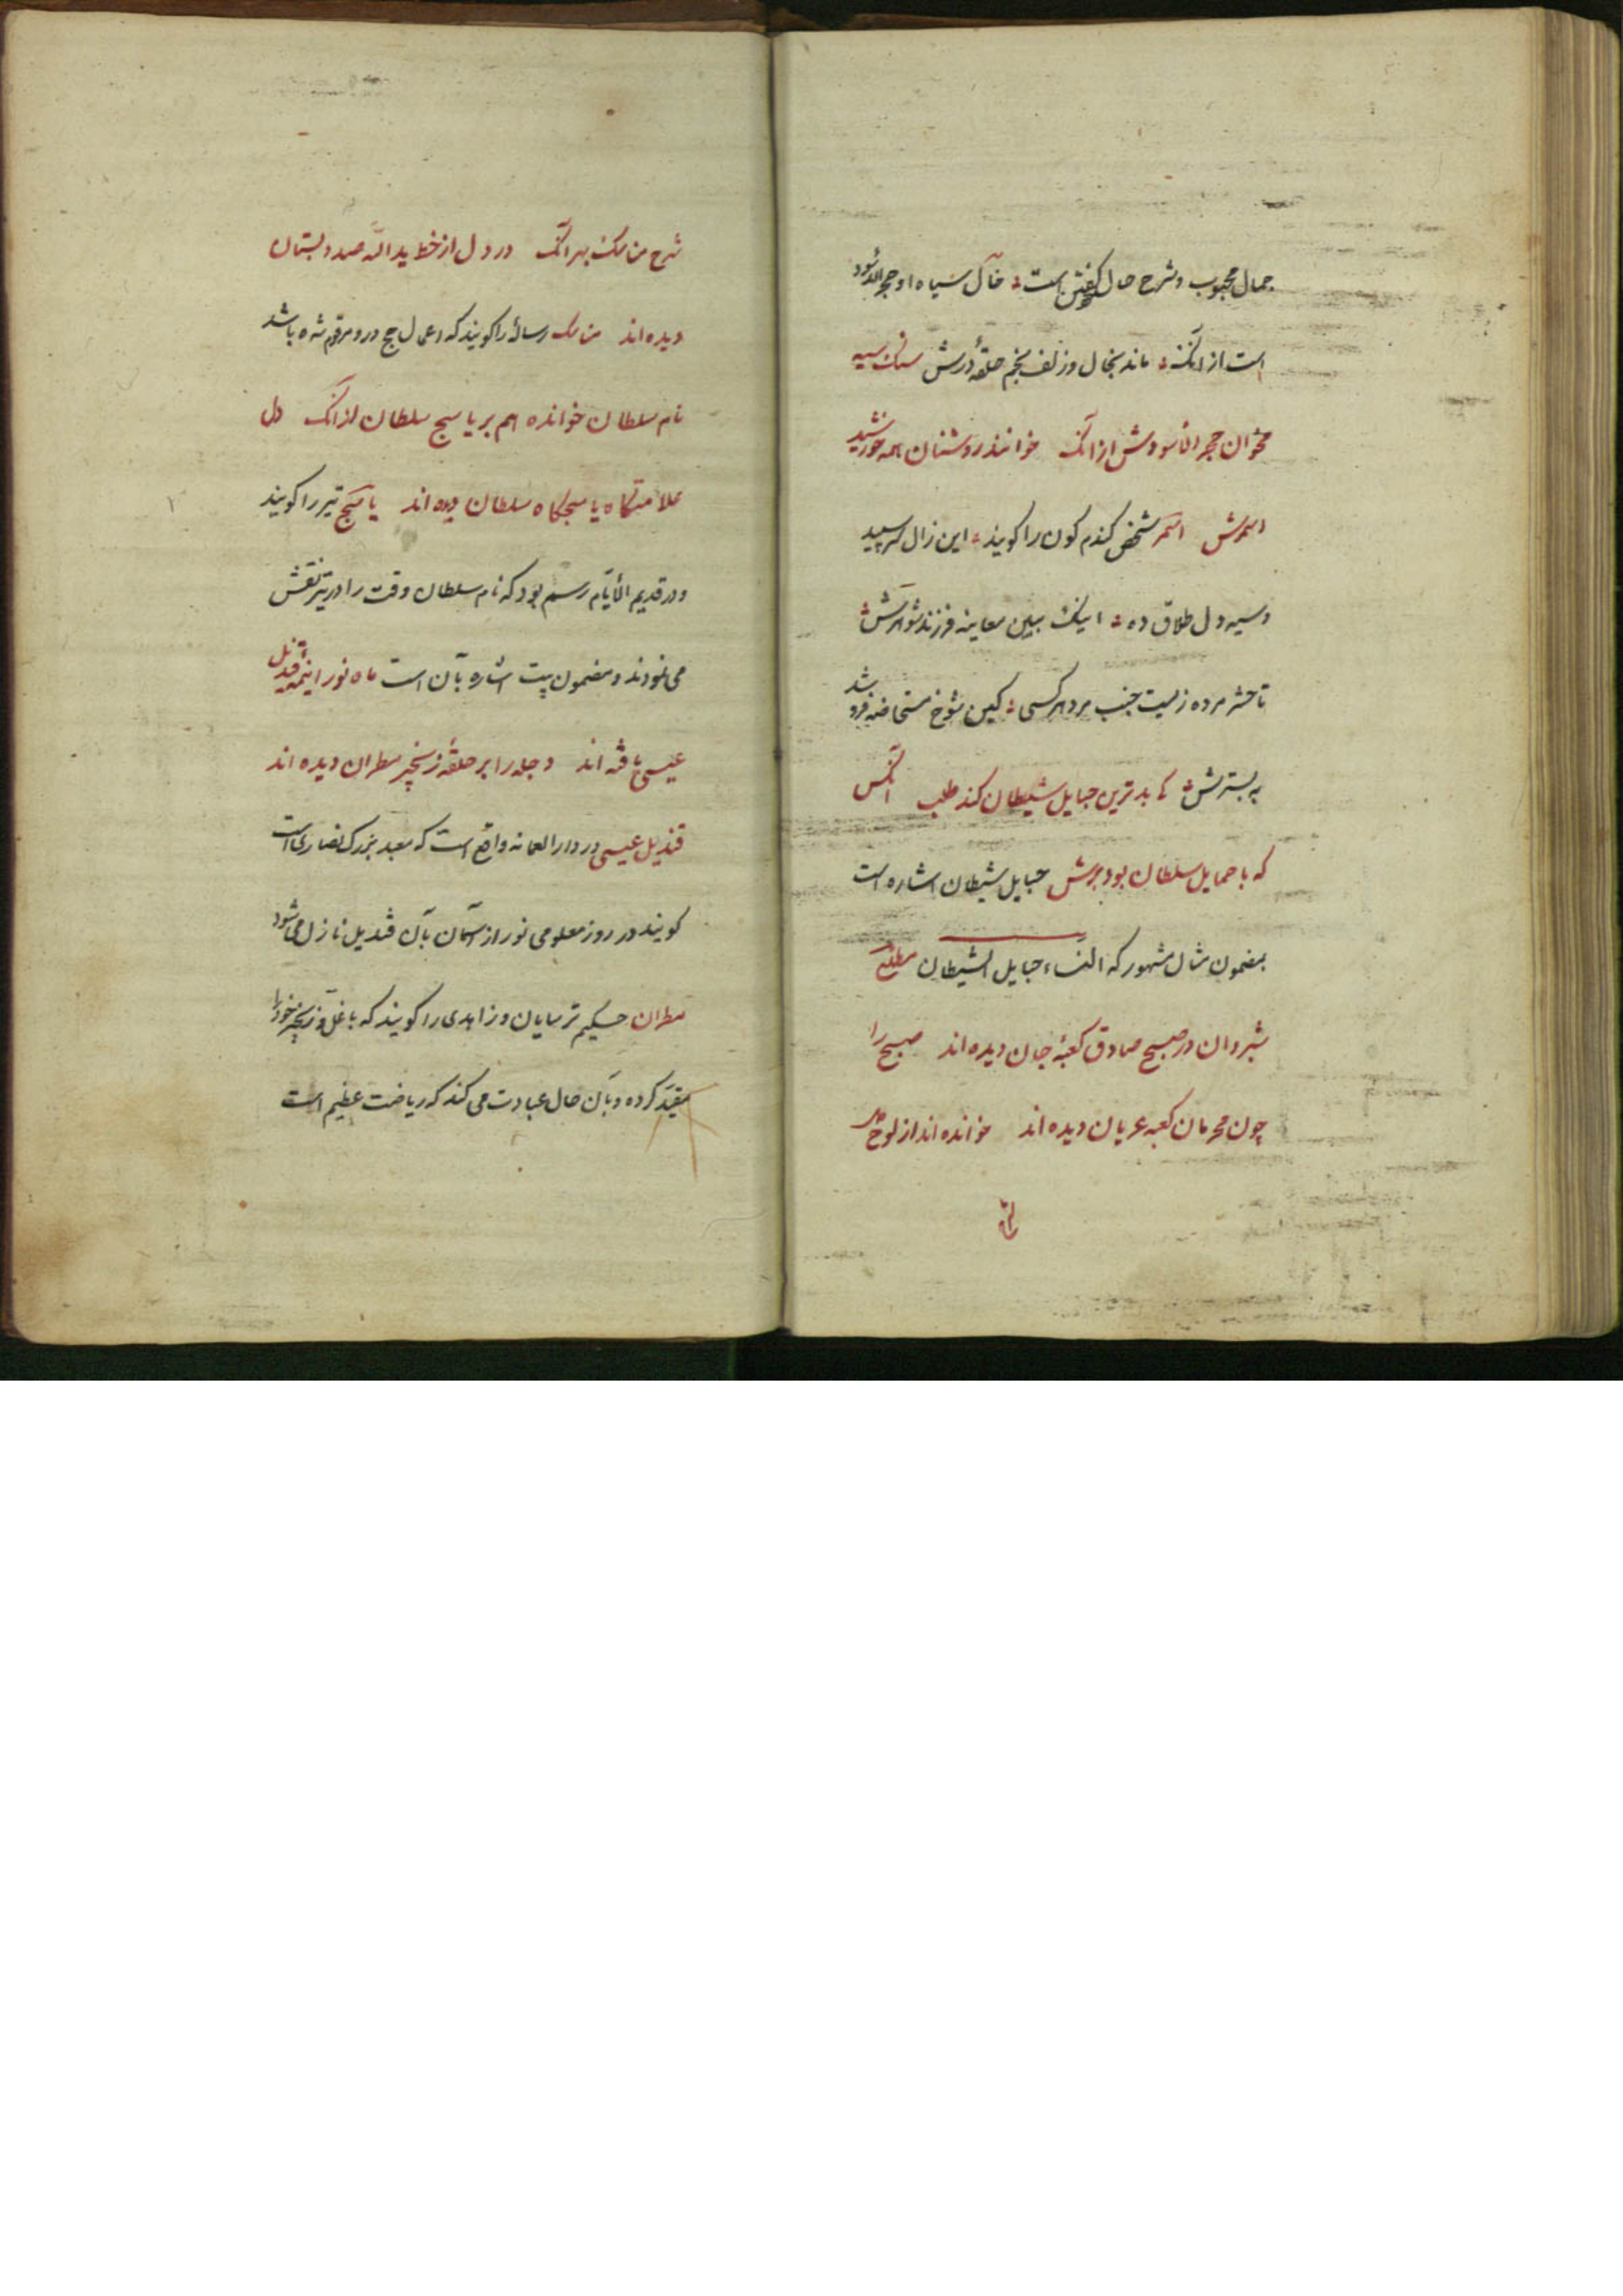 جمال محبوب و شرح حال گفتن است خال سیاه او حجر الاسود
است از آنکه ماند بخال وز لف بخم حلقهٔ درش سنک سیه
مخوان حجر الاسودش از آنک خوانند روشنان همه خورشید
اسمرش اسمر شخص کندم کون را کویند این زال سر سپید
و سیه دل طلاق ده اینک ببین معاینه فرزند شوهرش
تا حشر مرده زیست جنب مرد هر کسی کین شوخ مستحاضه فرو شد
به بسترش کابدترین حبایل شیطان کند طلب آنکس
که با حمایل سلطان بود برش حبایل شیطان اشاره است
بمضمون مثال مشهور که النساء حبایل الشیطان مطلع
شبروان در صبح صادق کعبهٔ جان دیده اند صبح را
چون محرمان کعبه عریان دیده اند خوانده اند از لوح دل
شرح مناسک بهر آنک در دل از خط ید الله صد دبستان
دیده اند مناسک رساله را کویند که اعمال حج در و مرقوم شده باشد
نام سلطان خوانده هم بر یاسج سلطان از آنک دل
علامتکاه یاسجکاه سلطان دیده اند یاسج تیر را کویند
و در قدیم الایام رسم بود که نام سلطان وقت را در تیر نقش
می نمودند و مضمون بیت اشاره بآن است ماه نو را نیمهٔ قندیل
عیسی یافته اند دجله را بر حلقهٔ زنجیر مطران دیده اند
قندیل عیسی در واقع است که معبد بزرک نصاری است
کویند در روز معلومی نور از آسمان بآن قندیل نازل می شود
مطران حکیم ترسایان و زاهدی را کویند که با غل و زنجیر خود را
مقید کرده و بآن حال عبادت می کند که ریاضت عظیم است